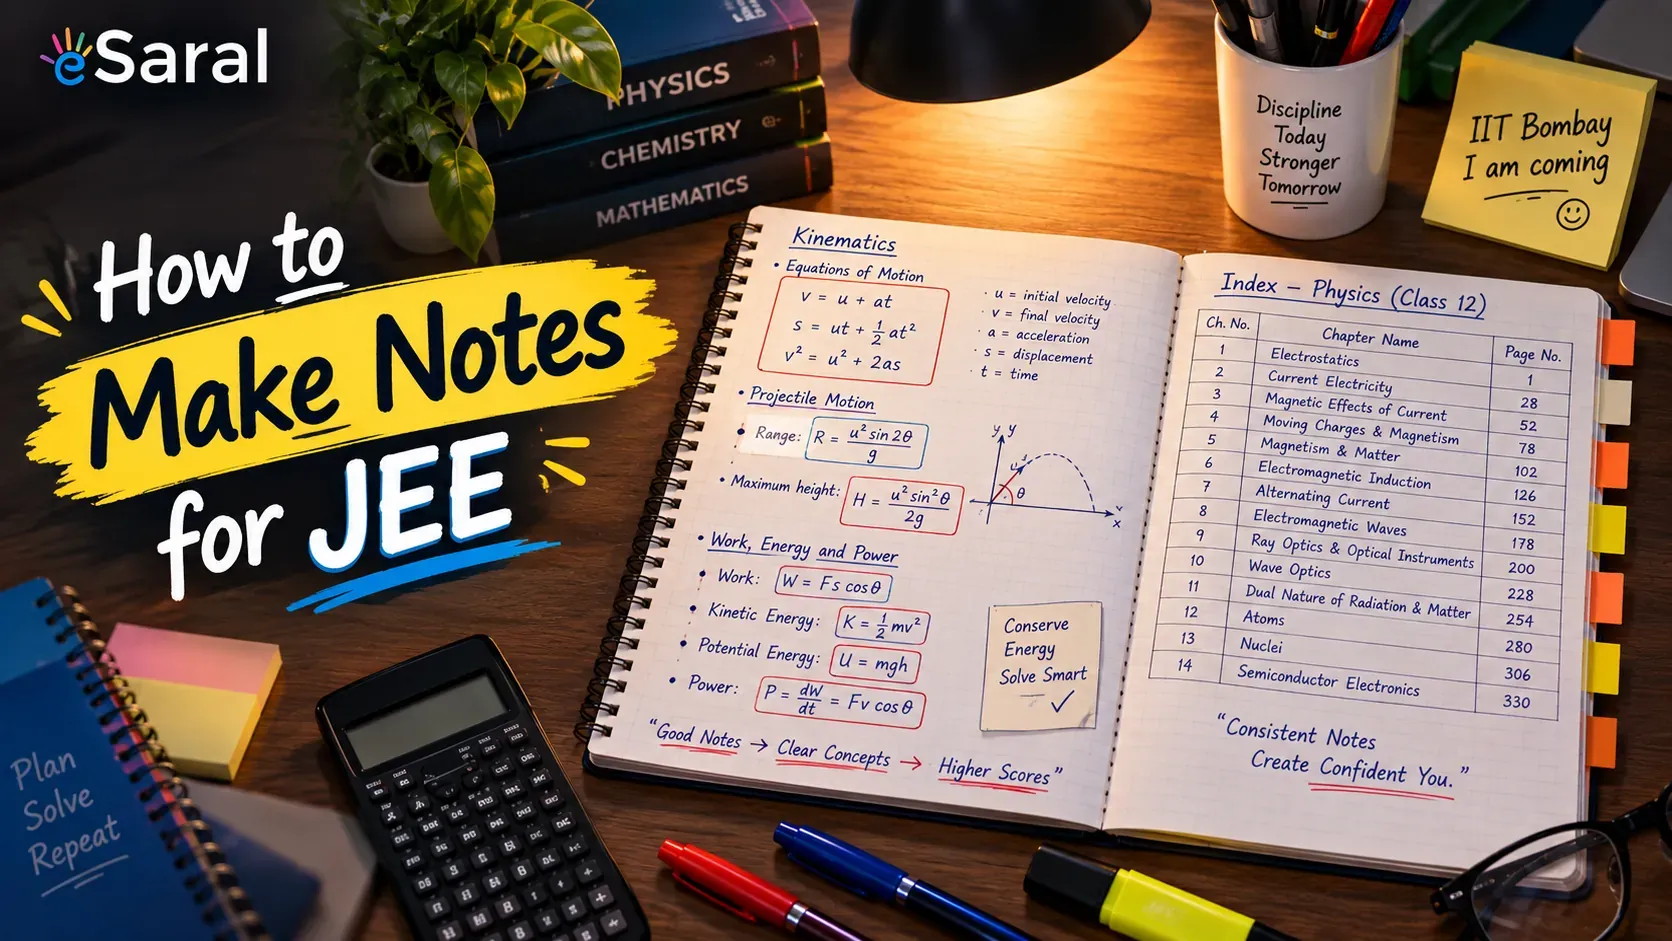 eSaral
How to
Make Notes
for JEE
PHYSICS
CHEMISTRY
MATHEMATICS
Discipline
Today
Stronger
Tomorrow
IIT Bombay
I am coming
Kinematics
• Equations of Motion
v = u + at
s = ut + 1/2 at²
v² = u² + 2as
· u = initial velocity
· v = final velocity
· a = acceleration
· s = displacement
· t = time
• Projectile Motion
• Range: R = u² sin 2θ / g
• Maximum height: H = u² sin² θ / 2g
y y
u
θ
x
• Work, Energy and Power
• Work: W = Fs cos θ
• Kinetic Energy: K = 1/2 mv²
• Potential Energy: U = mgh
• Power: P = dW/dt = Fv cos θ
Conserve
Energy
Solve Smart
"Good Notes → Clear Concepts → Higher Scores"
Index – Physics (Class 12)
Ch. No. Chapter Name Page No.
1 Electrostatics 1
2 Current Electricity 28
3 Magnetic Effects of Current 52
4 Moving Charges & Magnetism 78
5 Magnetism & Matter 102
6 Electromagnetic Induction 126
7 Alternating Current 152
8 Electromagnetic Waves 178
9 Ray Optics & Optical Instruments 200
10 Wave Optics 228
11 Dual Nature of Radiation & Matter 254
12 Atoms 280
13 Nuclei 306
14 Semiconductor Electronics 330
"Consistent Notes
Create Confident You."
Plan
Solve
Repeat